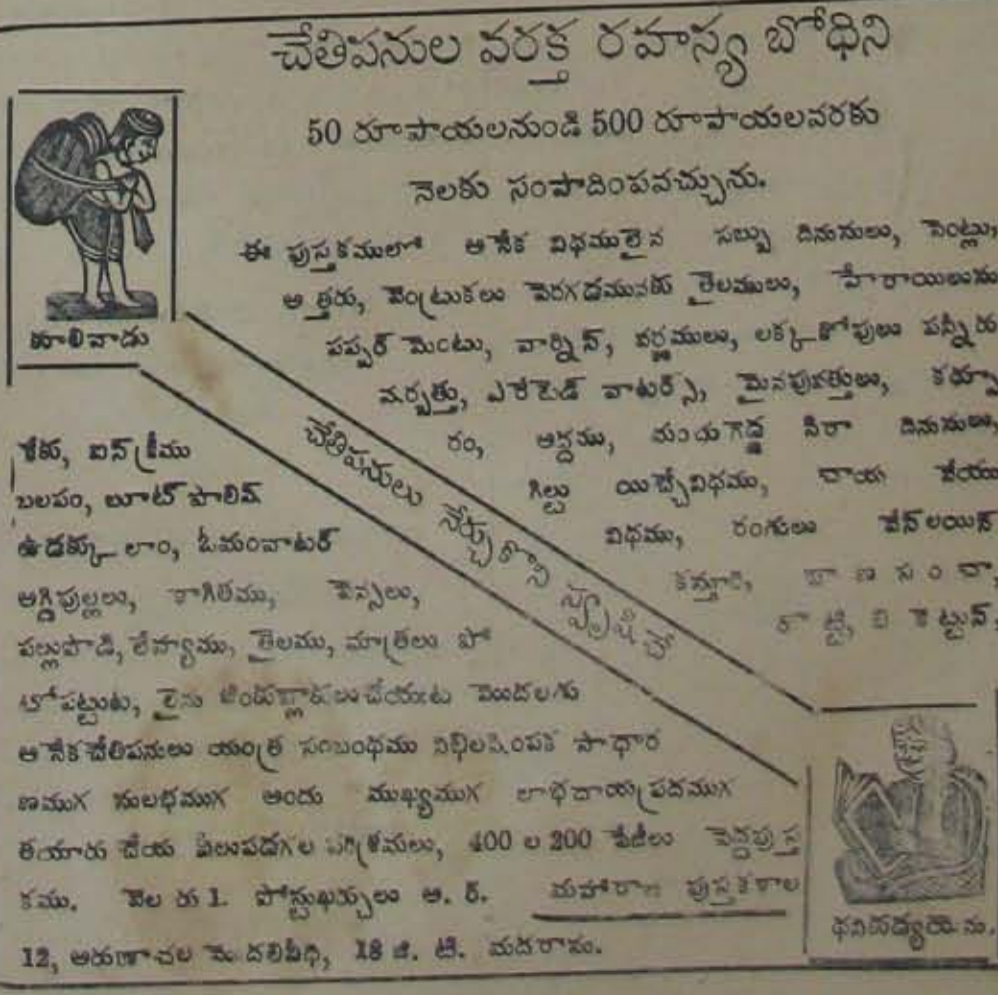 చేతిపనుల వర్తక రహస్య బోధిని
50 రూపాయలనుండి 500 రూపాయలవరకు
నెలకు సంపాదింపవచ్చును.
ఈ పుస్తకములో అనేక విధములైన సబ్బు దినుసులు, సెంట్లు,
అత్తరు, వెంట్రుకలు పెరగడమునకు తైలములు, హేరాయిలును
పప్పర్ మెంటు, వార్నిష్, వర్ణములు, లక్క పన్నీరు
షర్బత్తు, ఎరేటెడ్ వాటర్స్, మైనపువత్తులు, కర్పూ
రం, అద్దము, మందుగెడ్డ సిరా దినుసులు,
గిల్టు యిచ్చేవిధము, చాయ వేయు
విధము, రంగులు
కస్తూరి,
కూలివాడు
చేతిపనులు నేర్చుకొని
కేకు, ఐస్‌క్రీము
బలపం, బూట్ పాలిష్
ఉడక్కులాం, ఓమంవాటర్
అగ్గిపుల్లలు, కాగితము, పెన్సలు,
పల్లుపొడి, లేహ్యము, తైలము, మాత్రలు ఫో
టోపట్టుట, మొదలగు
అనేక చేతిపనులు యంత్ర సంబంధము సాధార
ణముగ సులభముగ అందు ముఖ్యముగ లాభదాయప్రదముగ
తయారు చేయ పరిశ్రమలు, 400 ల 200 పేజీలు పెద్దపుస్త
కము. వెల రు 1. పోస్టుఖర్చులు అ. ర్. మహారాణ పుస్తకశాల
12, అరుణాచల మొదలివీధి, 18 జి. టి. మదరాసు.